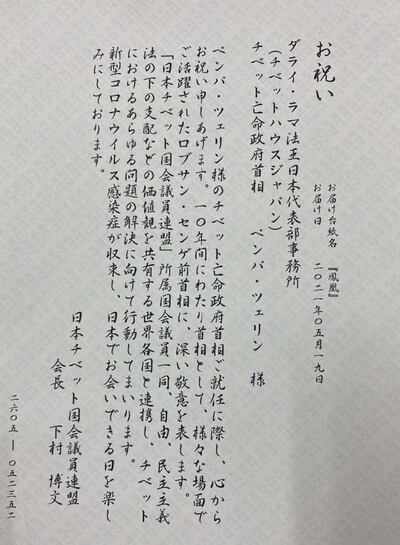 お祝い
お届け台紙名 『鳳凰』
お届け日 二〇二一年〇五月一九日
ダライ・ラマ法王日本代表部事務所
(チベットハウスジャパン)
チベット亡命政府首相 ペンパ・ツェリン 様
ペンパ・ツェリン様のチベット亡命政府首相ご就任に際し、心から
お祝い申しあげます。一〇年間にわたり首相として、様々な場面で
ご活躍されたロブサン・センゲ前首相に、深い敬意を表します。
「日本チベット国会議員連盟」所属国会議員一同、自由、民主主義
法の下の支配などの価値観を共有する世界各国と連携し、チベット
におけるあらゆる問題の解決に向けて行動してまいります。
新型コロナウイルス感染症が収束し、日本でお会いできる日を楽し
みにしております。
日本チベット国会議員連盟
会長 下村 博文
二六〇五ー〇五二三五二